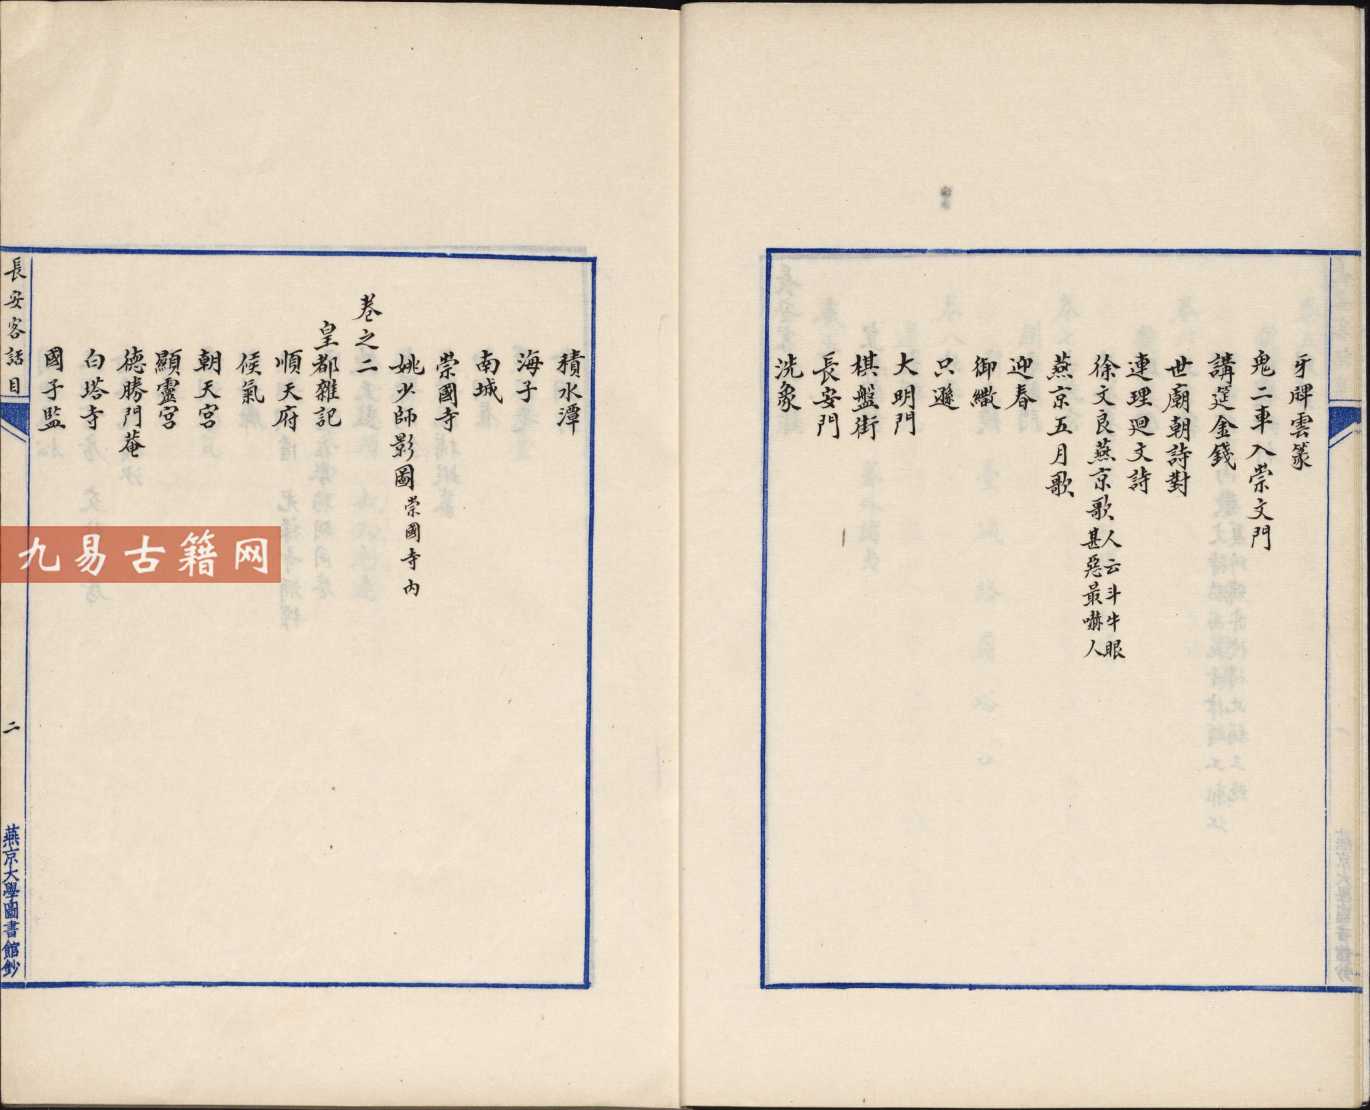 牙牌雲篆
鬼二車入崇文門
講筵金錢
世廟朝詩對
連理迴文詩
徐文良燕京歌 人云斗牛眼甚惡最嚇人
燕京五月歌
迎春
御繖
只遜
大明門
棋盤街
長安門
洗象
積水潭
海子
南城
崇國寺
姚少師影圖 崇國寺內
卷之二
皇都雜記
順天府
候氣
朝天宮
顯靈宮
德勝門菴
白塔寺
國子監
長安客話目
二
燕京大學圖書館鈔
九易古籍网